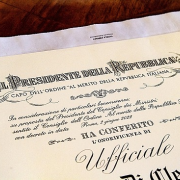 IL PRESIDENTE DELLA REPUBBLICA
CAPO DELL'ORDINE "AL MERITO DELLA REPUBBLICA ITALIANA"
In considerazione di particolari benemerenze
su proposta del Presidente del Consiglio dei Ministri
sentito il Consiglio dell'Ordine
con decreto in data Roma, 2 giugno
HA CONFERITO
L'ONORIFICENZA DI
Ufficiale
Di